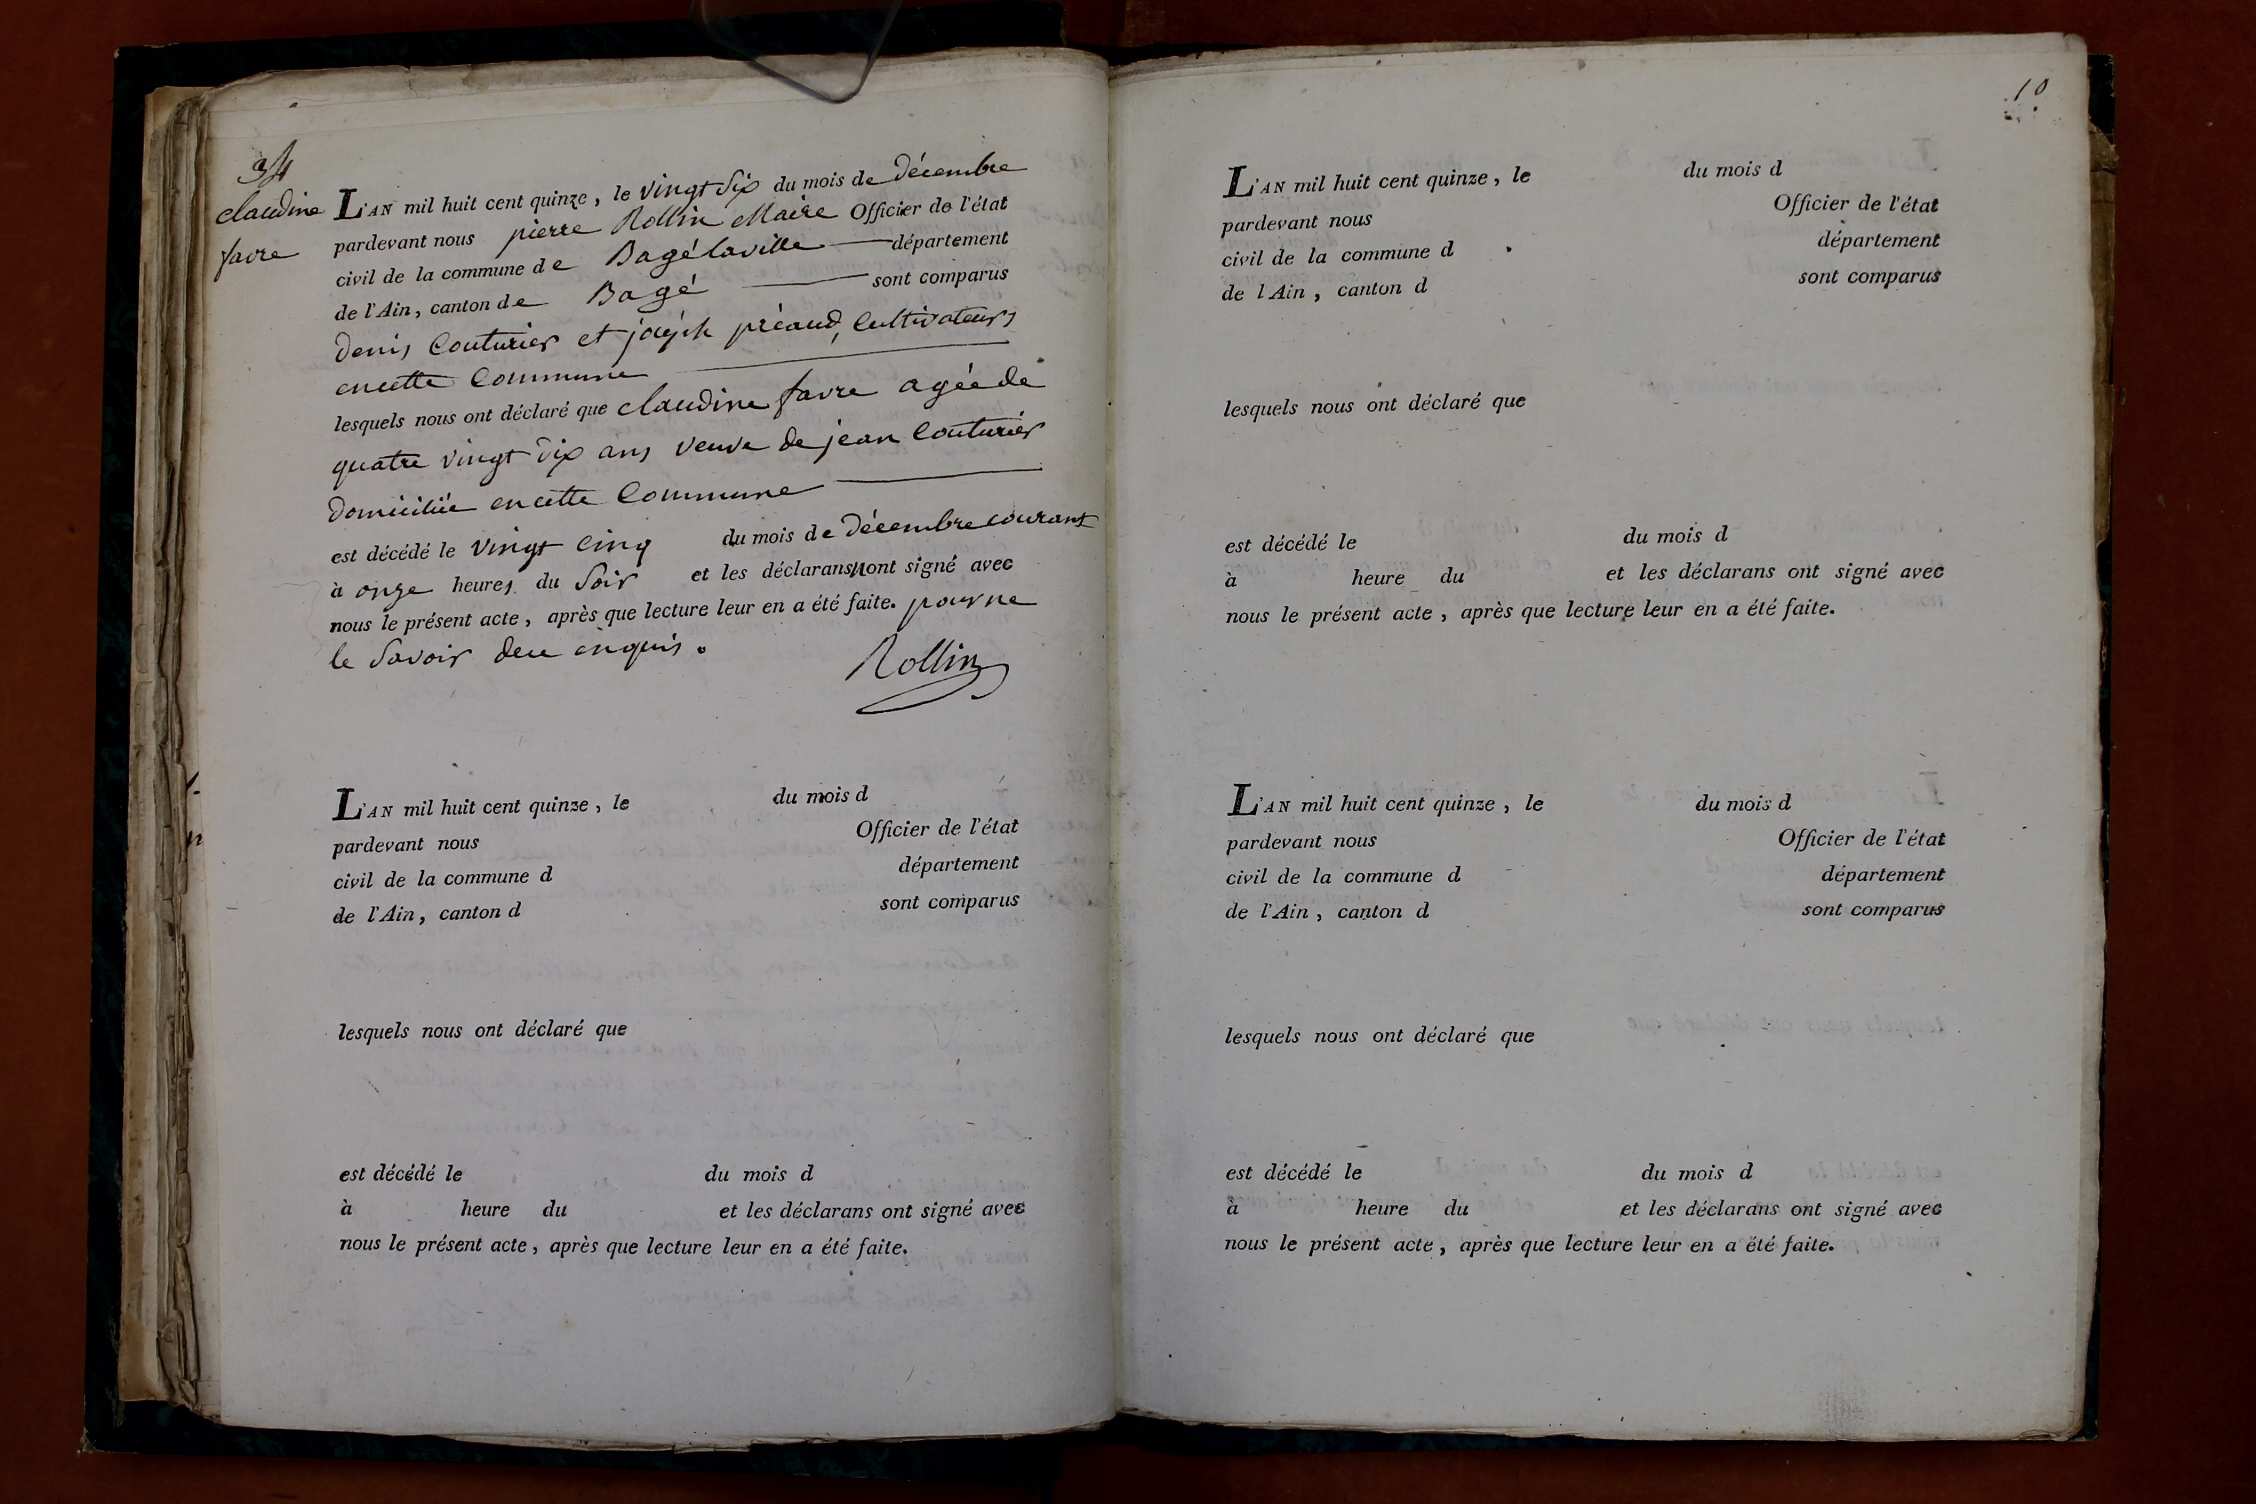 34
claudine
favre
L'AN mil huit cent quinze, le vingt Six du mois de décembre
pardevant nous pierre Rollin Maire Officier de l'état
civil de la commune de Bagélaville département
de l'Ain, canton de Bagé sont comparus
denis Couturier et joseph préaud, Cultivateurs
encette Commune
lesquels nous ont déclaré que claudine favre agée de
quatre vingt dix ans veuve de jean Couturier
domiciliée encette Commune
est décédé le vingt Cinq du mois de décembre courant
à onze heures du Soir et les déclarans n'ont signé avec
nous le présent acte, après que lecture leur en a été faite. pour ne
le Savoir de ce enquis.
Rollin
L'AN mil huit cent quinze, le du mois d
pardevant nous Officier de l'état
civil de la commune d département
de l'Ain, canton d sont comparus
lesquels nous ont déclaré que
est décédé le du mois d
à heure du et les déclarans ont signé avec
nous le présent acte, après que lecture leur en a été faite.
10
L'AN mil huit cent quinze, le du mois d
pardevant nous Officier de l'état
civil de la commune d département
de l'Ain, canton d sont comparus
lesquels nous ont déclaré que
est décédé le du mois d
à heure du et les déclarans ont signé avec
nous le présent acte, après que lecture leur en a été faite.
L'AN mil huit cent quinze, le du mois d
pardevant nous Officier de l'état
civil de la commune d département
de l'Ain, canton d sont comparus
lesquels nous ont déclaré que
est décédé le du mois d
à heure du et les déclarans ont signé avec
nous le présent acte, après que lecture leur en a été faite.